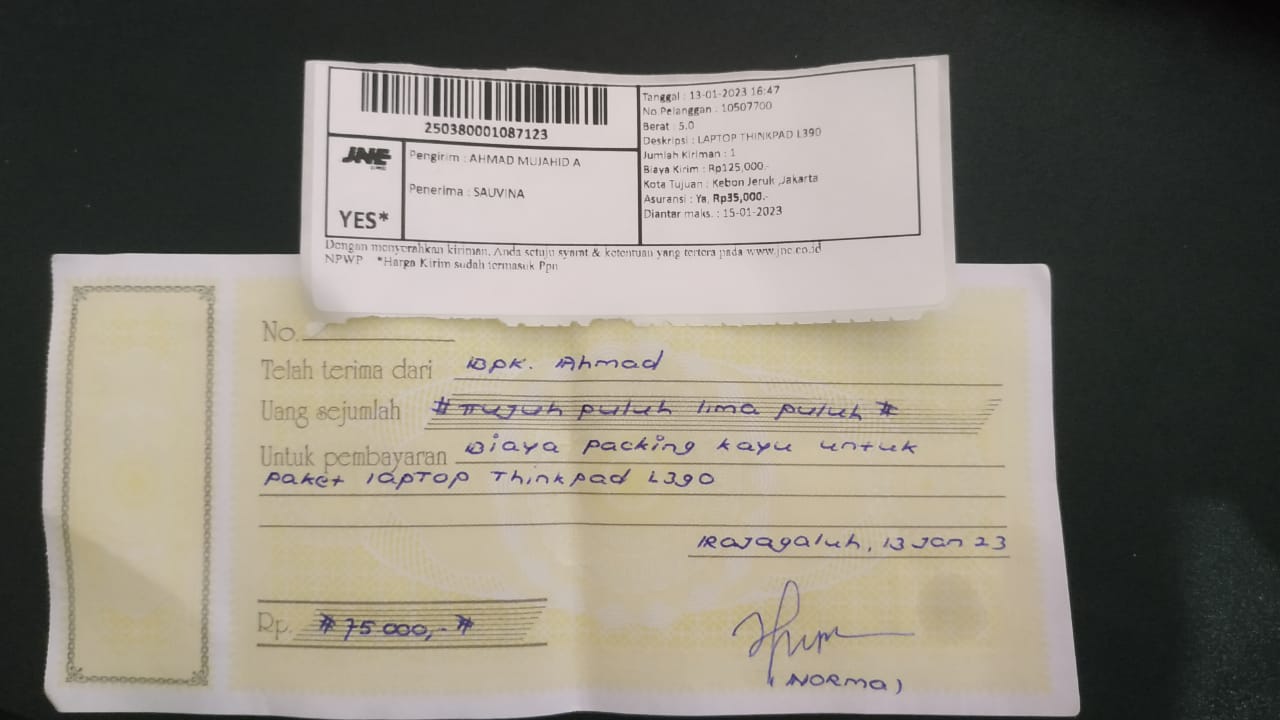 250380001087123
JNE
YES*
Pengirim : AHMAD MUJAHID A
Penerima : SAUVINA
Tanggal : 13-01-2023 16:47
No.Pelanggan : 10507700
Berat : 5.0
Deskripsi : LAPTOP THINKPAD L390
Jumlah Kiriman : 1
Biaya Kirim : Rp125,000.-
Kota Tujuan : Kebon Jeruk ,Jakarta
Asuransi : Ya, Rp35,000.-
Diantar maks. : 15-01-2023
Dengan menyerahkan kiriman, Anda setuju syarat & ketentuan yang tertera pada www.jne.co.id
NPWP *Harga Kirim sudah termasuk Ppn
No.
Telah terima dari Bpk. Ahmad
Uang sejumlah # Tujuh puluh lima puluh #
Untuk pembayaran Biaya packing kayu untuk
paket laptop Thinkpad L390
Rajagaluh, 13 Jan 23
Rp. # 75 000,- #
(NORMA)